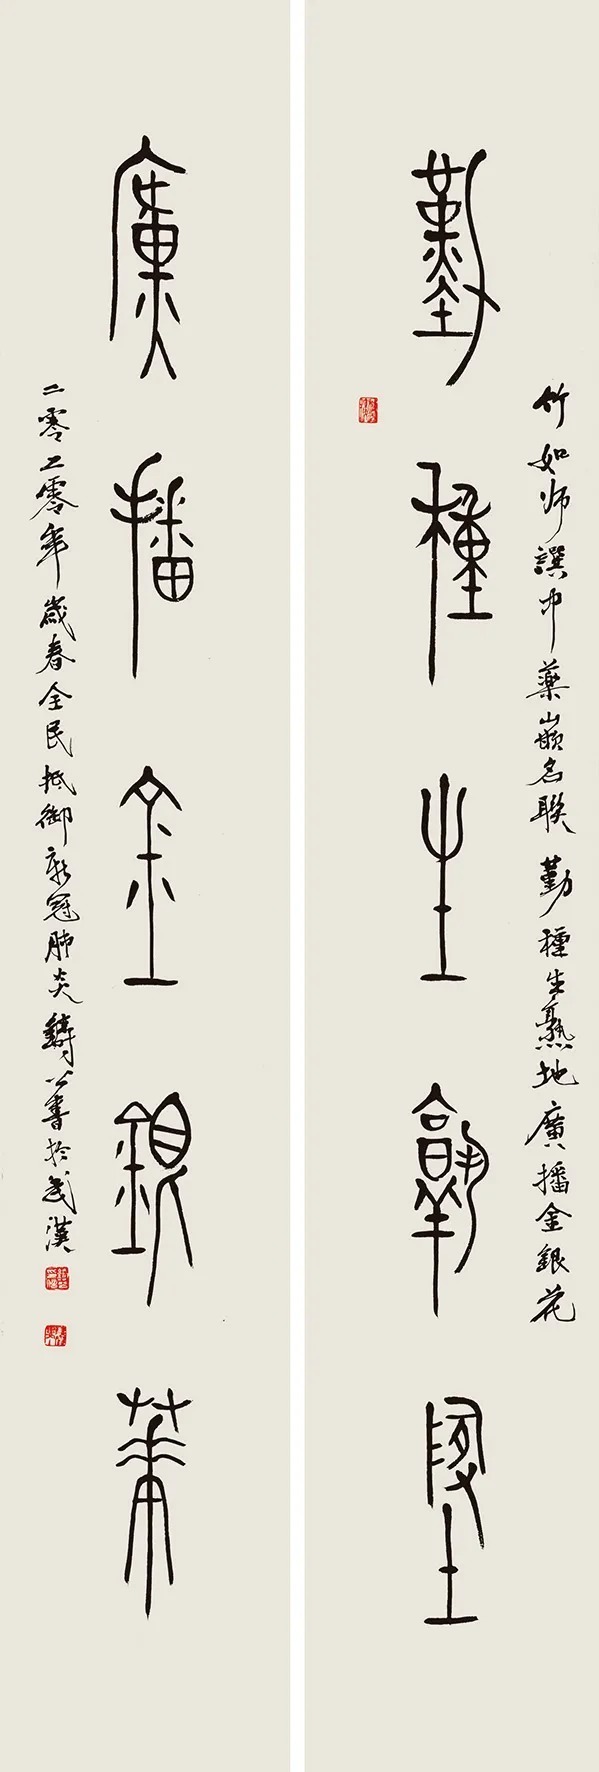 竹如师譔中藥嵌名聯 勤種生熟地廣播金銀花
勤種生熟地
廣播金銀華
二零二零年歲春全民抵御新冠肺炎鑄公書於武漢